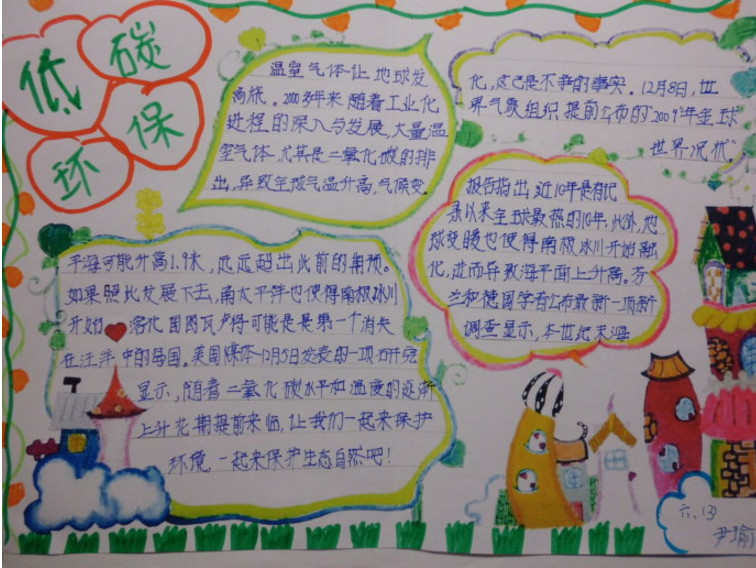 低碳
环保
温室气体让地球发
高烧。200多年来随着工业化
进程的深入与发展,大量温
室气体尤其是二氧化碳的排
出,导致全球气温升高,气候变
化,这已是不争的事实。12月8日,世
界气象组织提前公布的"2009年全球
世界况状"
报告指出,近10年是有记
录以来全球最热的10年,此外,地
球变暖也使得南极冰川开始融
化,进而导致海平面上升高。芬
兰和德国学者公布最新一项新
调查显示,本世纪末海
平海可能升高1.9米,远远超出此前的期预。
如果照比发展下去,南太平洋也使得南极冰川
开始 溶化国图瓦卢将可能是是第一个消失
在汪洋中的岛国。美国媒体12月5日发表的一项研究
显示,随着二氧化碳水平和温度的逐渐
上升花期提前来临,让我们一起来保护
环境,一起来保护生态自然吧!
六、(3)
尹瑜